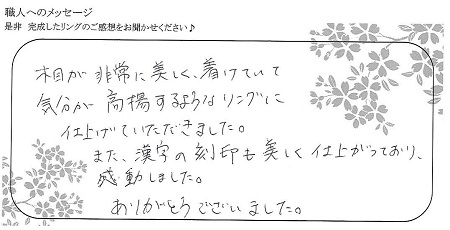 職人へのメッセージ
是非 完成したリングのご感想をお聞かせください♪
木目が非常に美しく、着けていて
気分が高揚するようなリングに
仕上げていただきました。
また、漢字の刻印も美しく仕上がっており、
感動しました。
ありがとうございました。